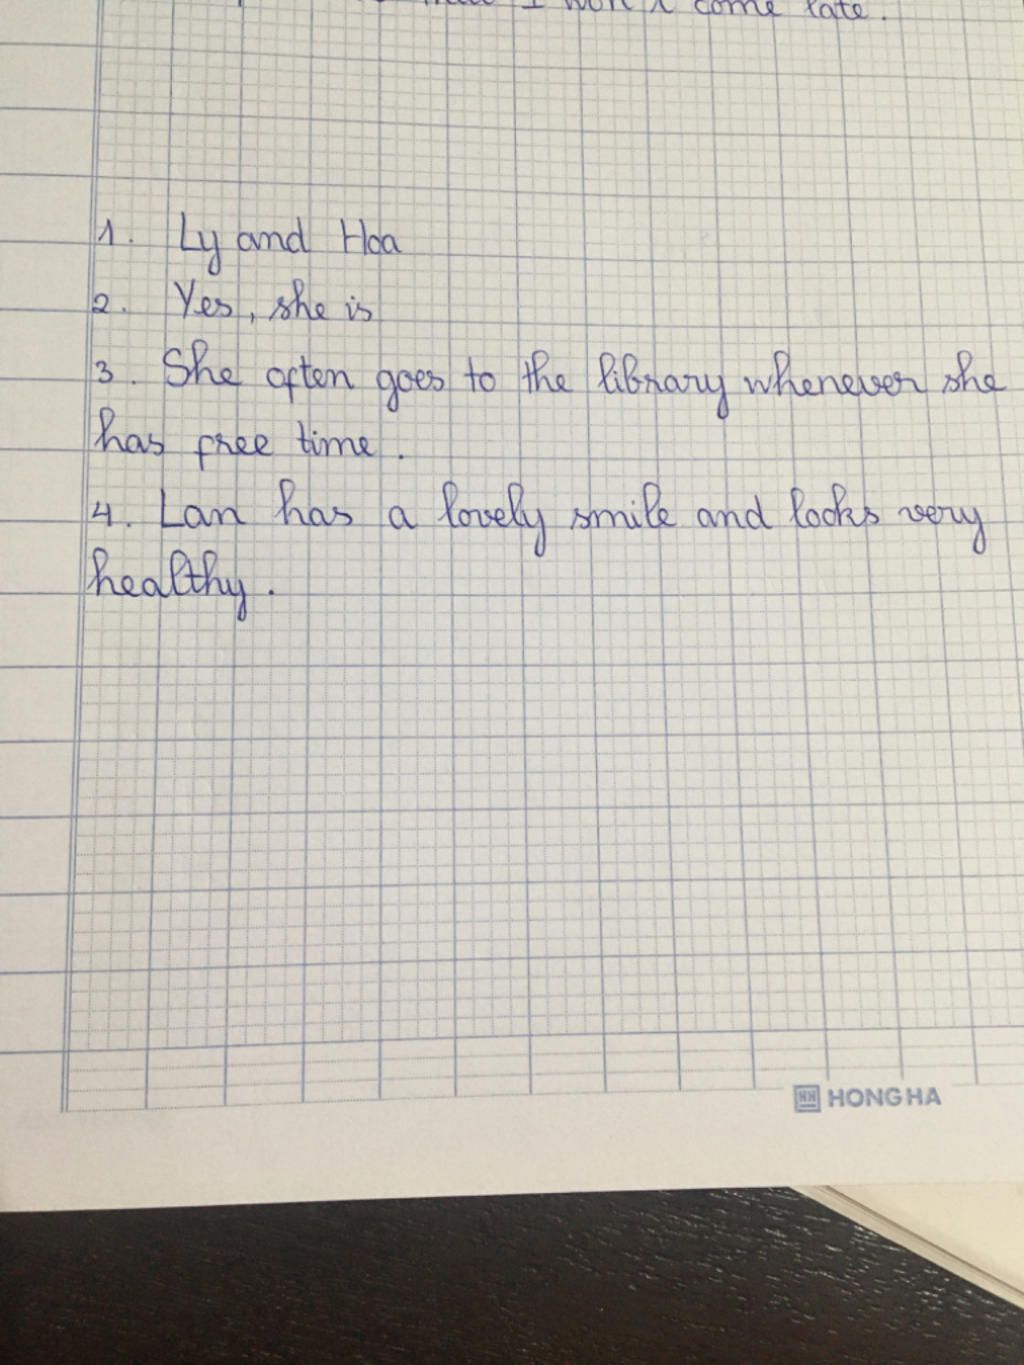 I won't come late.
1. Ly and Hoa
2. Yes, she is
3. She often goes to the library whenever she
has free time.
4. Lan has a lovely smile and looks very
healthy.
HONG HA